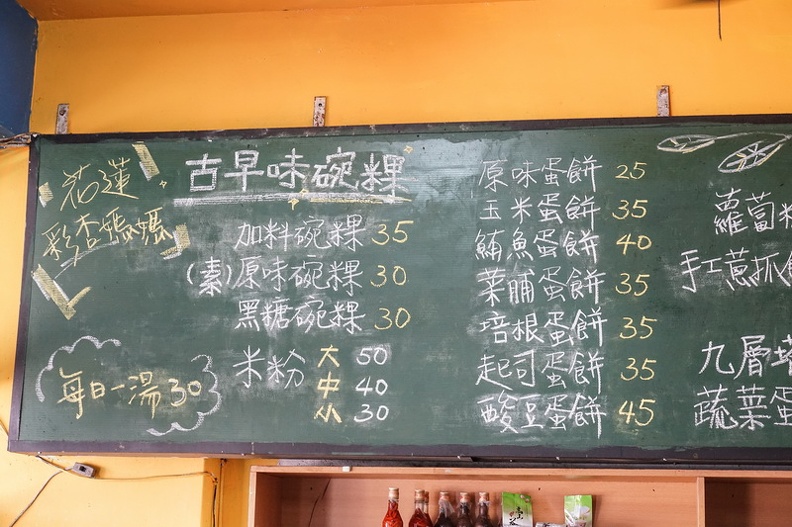 花蓮
彩杏媽媽
每日一湯 30
古早味碗粿
加料碗粿 35
(素)原味碗粿 30
黑糖碗粿 30
米粉 大 50
中 40
小 30
原味蛋餅 25
玉米蛋餅 35
鮪魚蛋餅 40
菜脯蛋餅 35
培根蛋餅 35
起司蛋餅 35
酸豆蛋餅 45
蘿蔔
手工蔥抓
九層
蔬菜蛋